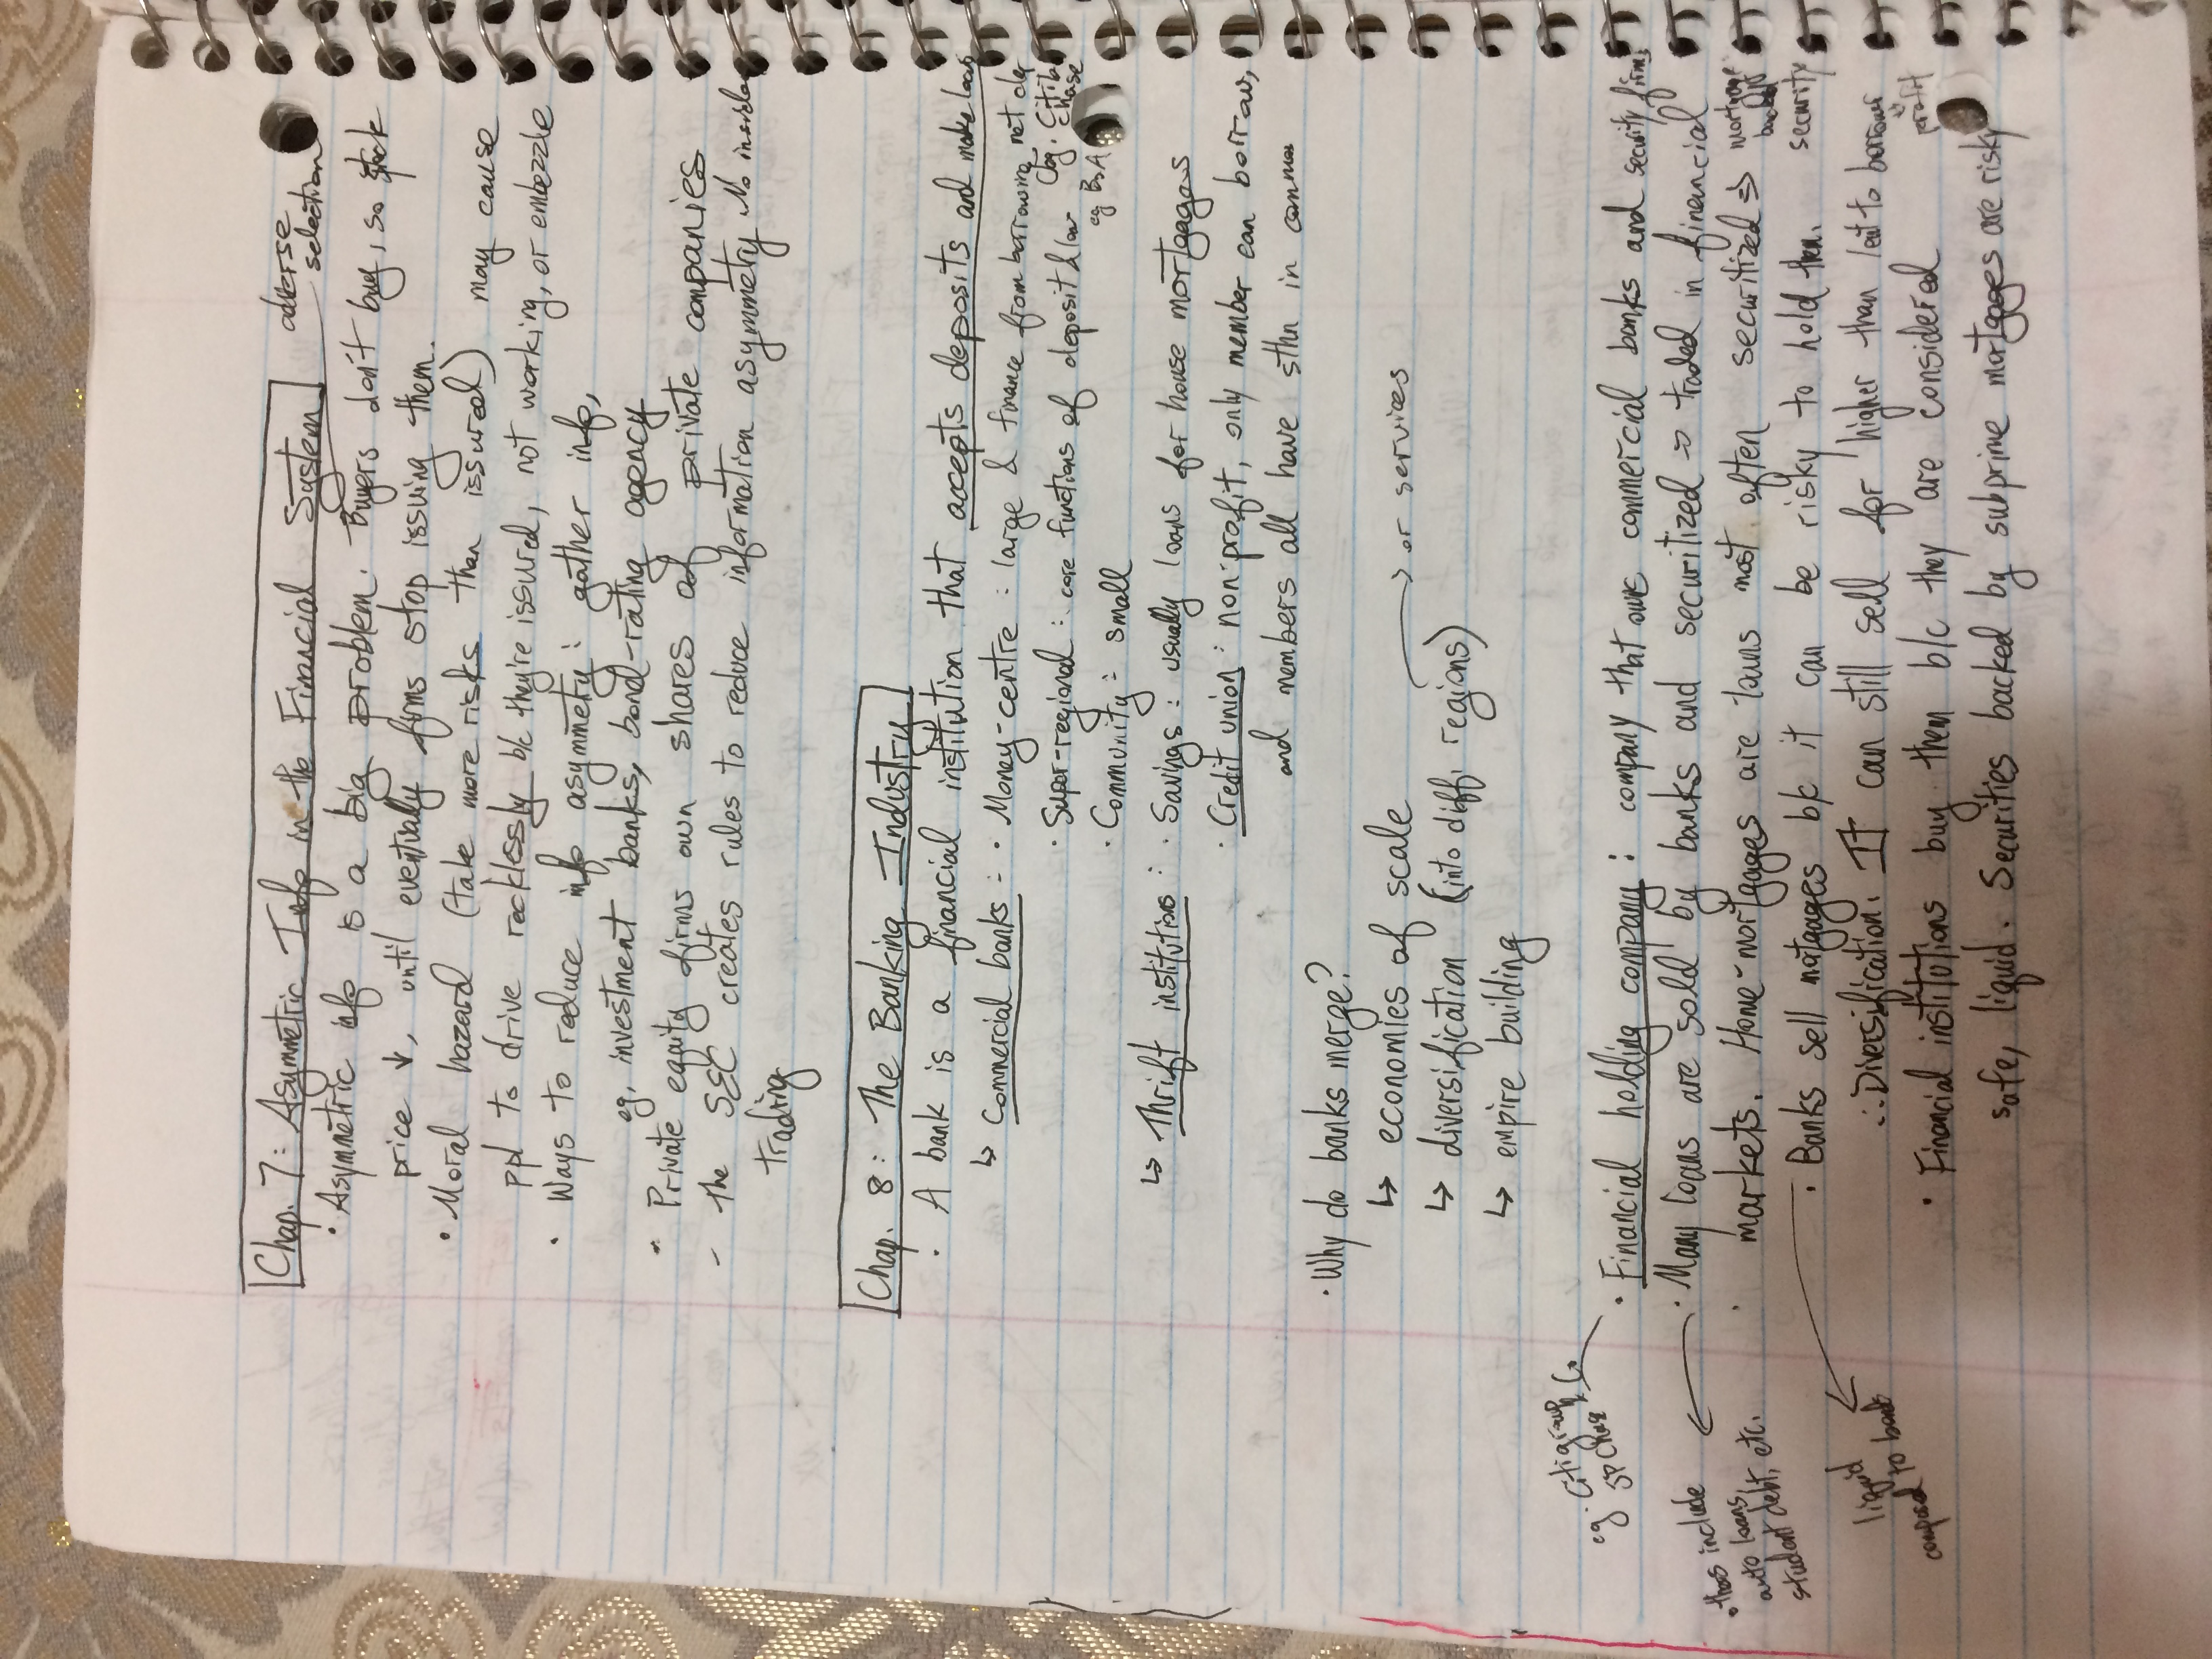 Chap. 7: Asymmetric Info in the Financial System
adverse
selection
• Asymmetric info is a big problem. Buyers don't buy, so stock
price ↓, until eventually firms stop issuing them.
• Moral hazard (take more risks than issured) may cause
ppl to drive recklessly b/c they're issured, not working, or embezzle
• Ways to reduce info asymmety: gather info,
eg, investment banks, bond-rating agency
• Private equity firms own shares of private companies
- The SEC creates rules to reduce information asymmety No insider
trading
Chap. 8: The Banking Industry
• A bank is a financial institution that accepts deposits and make loans
↳ Commercial banks: • Money-centre: large & finance from borrowing, not
eg. Citib
Chase
• Super-regional: core functions of deposit &
eg BoA
• Community: small
↳ Thrift institutions: • Savings: usually loans for house mortgages
• Credit union: non-profit, only member can borrow,
and members all have sthn in common
• Why do banks merge?
↳ economies of scale
→ or services
↳ diversification (into diff. regions)
↳ empire building
eg. Citigroup
JP Chase & Co
• Financial holding company: company that owns commercial banks and security firms
• Many loans are sold by banks and securitized → traded in financial
• thes include
auto loans,
student debt, etc.
markets. Home-mortgages are loans most often securitized ⇒ mortgage
backed
security
• Banks sell motgages b/c it can be risky to hold them.
liquid
compared to bonds
∴ Diversification. It can still sell for higher than lent to borrower
profit
• Financial institutions buy them b/c they are considered
safe, liquid. Securities backed by subprime mortgages are risky